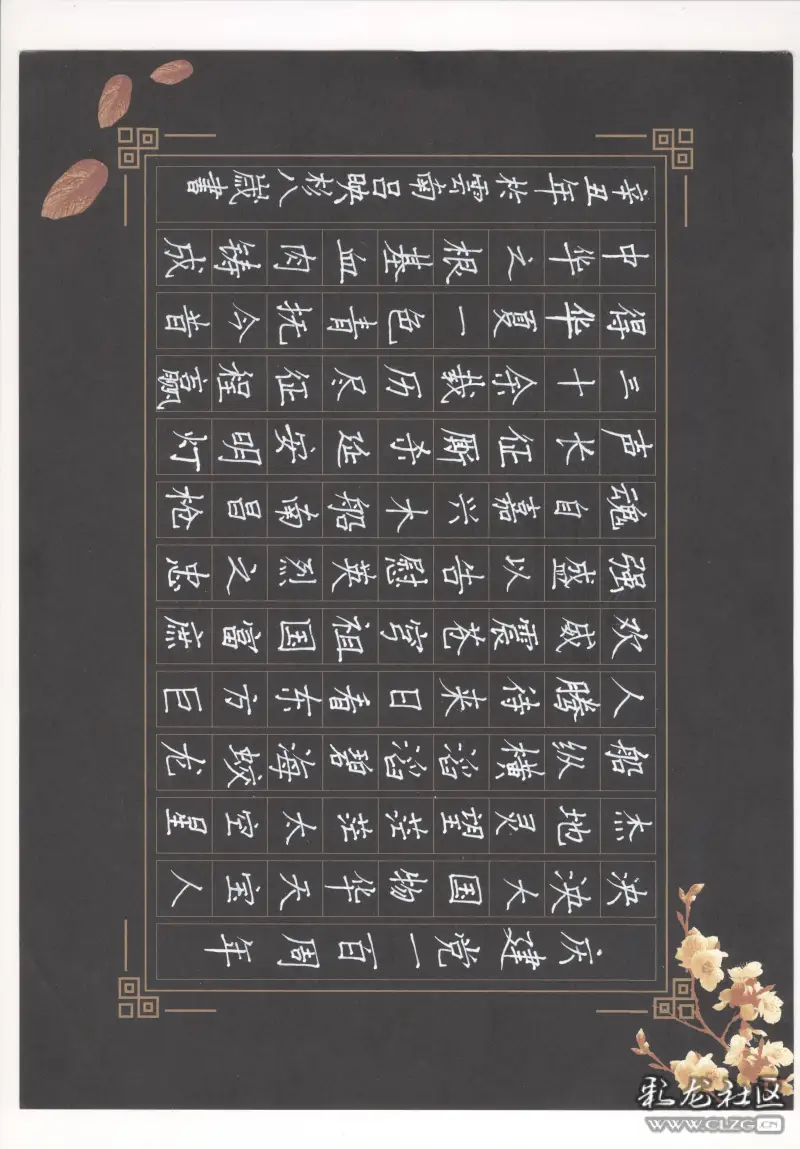 庆建党一百周年
泱泱大国物华天宝人
杰地灵望茫茫太空星
船纵横滔滔碧海蛟龙
人腾待来日看东方巨
欢威震苍穹祖国富庶
强盛以告慰英烈之忠
魂自嘉兴木船南昌枪
声长征厮杀延安明灯
三十余载历尽征程赢
得华夏一色青抚今昔
中华之根基血肉铸成
辛丑年於雲南吕映杉八歲書
彩龙社区
WWW.CLZG.CN